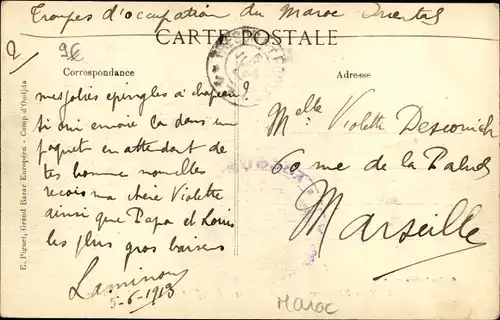 Troupes d'occupation du Maroc Oriental
CARTE POSTALE
2/
9€
Correspondance
Adresse
mes jolies epingles à chapeau?
si oui envoie ça dans un
paquet en attendant de
tes bonne nouvelles
recois ma chère Violette
ainsi que Papa et Louis
les plus gros baisers
5-6-1913
Melle Violette
60 rue de la Palud
Marseille
Maroc
E. Piguet, Grand Bazar Européen - Camp d'Oudjda